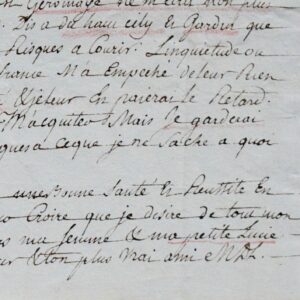 en Geronimge de m'être non plus
Dis a du haut cely Et Gardin que
Risques a Courir. L'inquietude ou
france M'a Empeché de leur Rien
& je leur En paierai le Retard.
M'acquiter. Mais je garderai
ques a Ceque je ne Sache a quoi
une Bonne Santé Et Reussite En
Croire que je desire de tout mon
ma femme & ma petite Lucie
& ton plus vrai ami